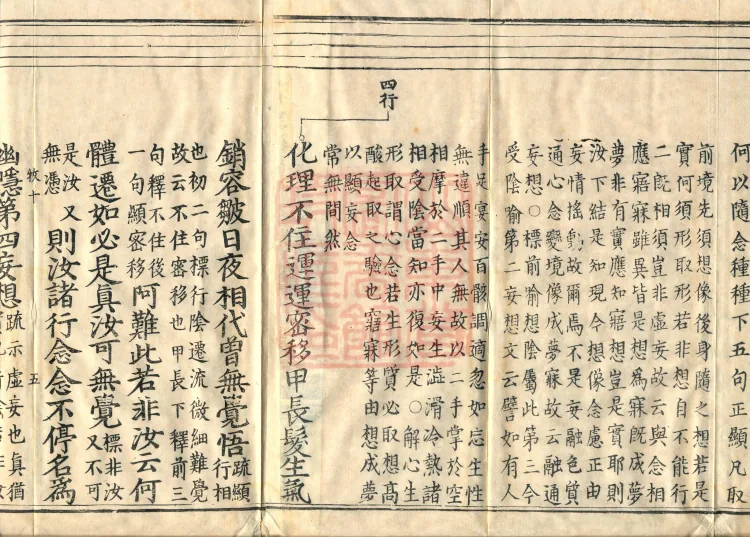 何以隨念種種下五句正顯凡取
前境先須想像後身隨之想若是
實何須形取形若非想自不能行
二旣相須豈非虛妄故云與念相
應寤寐雖異皆是想爲寐旣成夢
夢非有實應知寤想豈是實耶則
汝下結是知現今想像念慮正由
妄情搖動故爾焉不是妄融色質
通心念變境像成夢寐故云融通
妄想○標前喻想陰屬此第三今
受陰喻第二妄想文云譬如有人
手足宴安百骸調適忽如忘生性
無違順其人無故以二手掌於空
相摩於二手中妄生澁滑冷熱諸
相受陰當知亦復如是○解心生
形取謂心念若生形質必取想高
酸起取之驗也寤寐等由想成夢
以顯妄念
常無間然
四行
化理不住運運密移甲長髮生氣
銷容皺日夜相代曾無覺悟疏顯行相
也初二句標行陰遷流微細難覺
故云不住密移也甲長下釋前三
句釋不住後
一句顯密移
阿難此若非汝云何
體遷如必是真汝可無覺標非汝又不可
是汝又
無憑
則汝諸行念念不停名爲
幽隱第四妄想疏示虛妄也真猶